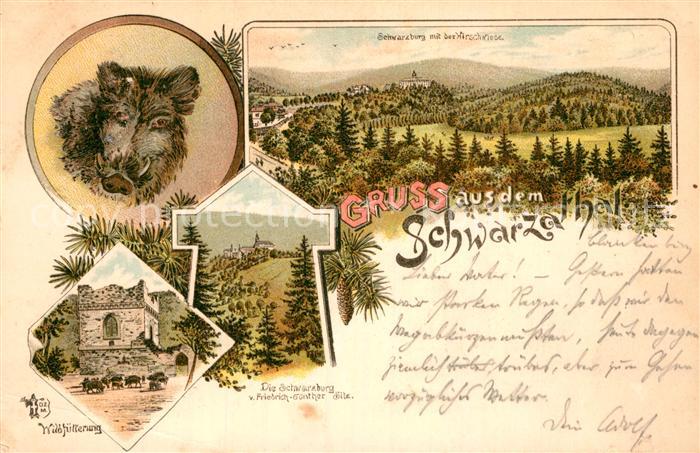 Schwarzburg mit der Hirschwiese.
GRUSS aus dem
Schwarzathal
Blankenburg
Lieber Vater! – Gestern hatten
wir starken Regen, so daß wir den
Weg abkürzen mußten, heute dagegen
ziemlich trübes, aber zum Gehen
vorzügliches Wetter.
Dein Adolf
Die Schwarzburg
v. Friedrich-Günther Sitz.
Wildfütterung